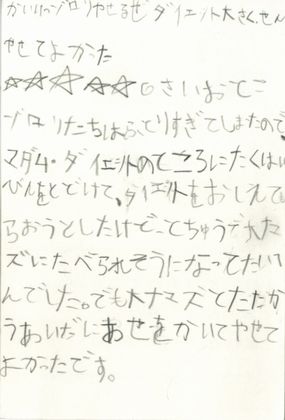 かいけつゾロリやせるぜ ダイエット大さくせん
やせてよかった
☆☆☆☆☆ 6さい おとこ
ゾロリたちはふとりすぎてしまたので、
マダム・ダイエットのところにたくはい
びんをとどけて、ダイエットをおしえて
らおうとしたけどとちゅうで大ナマ
ズにたべられそうになってたいへ
んでした。でも大ナマズとたたか
うあいだにあせをかいてやせて
よかったです。